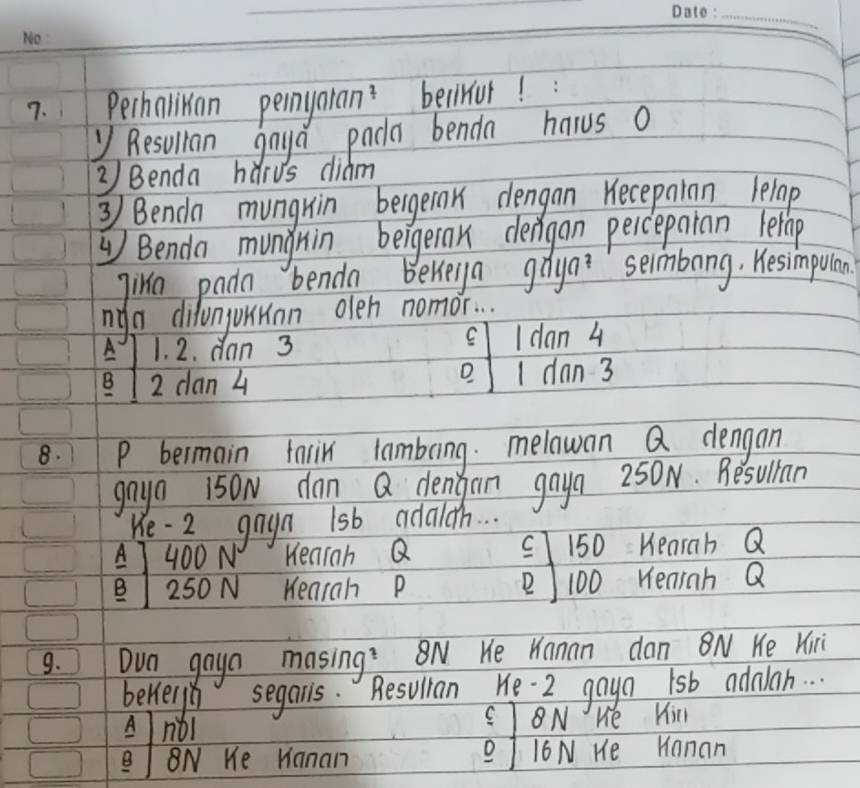 Date :
No :
7. Perhatikan pernyatan² berikut ! :
1) Resultan gaya pada benda harus 0
2) Benda harus diam
3) Benda mungkin bergerak dengan kecepatan tetap
4) Benda mungkin bergerak dengan percepatan tetap
Jika pada benda bekerja gaya² seimbang. Kesimpulan
nya ditunjukkan oleh nomor...
A] 1. 2. dan 3 C] 1 dan 4
B] 2 dan 4 D] 1 dan 3
8. P bermain tarik tambang. melawan Q dengan
gaya 150N dan Q dengan gaya 250N. Resultan
ke-2 gaya tsb adalah...
A] 400 N kearah Q C] 150 kearah Q
B] 250 N kearah P D] 100 kearah Q
9. Dua gaya masing² 8N ke kanan dan 8N ke kiri
bekerja segaris. Resultan ke-2 gaya tsb adalah...
A] nol C] 8N ke kiri
B] 8N ke kanan D] 16N ke kanan